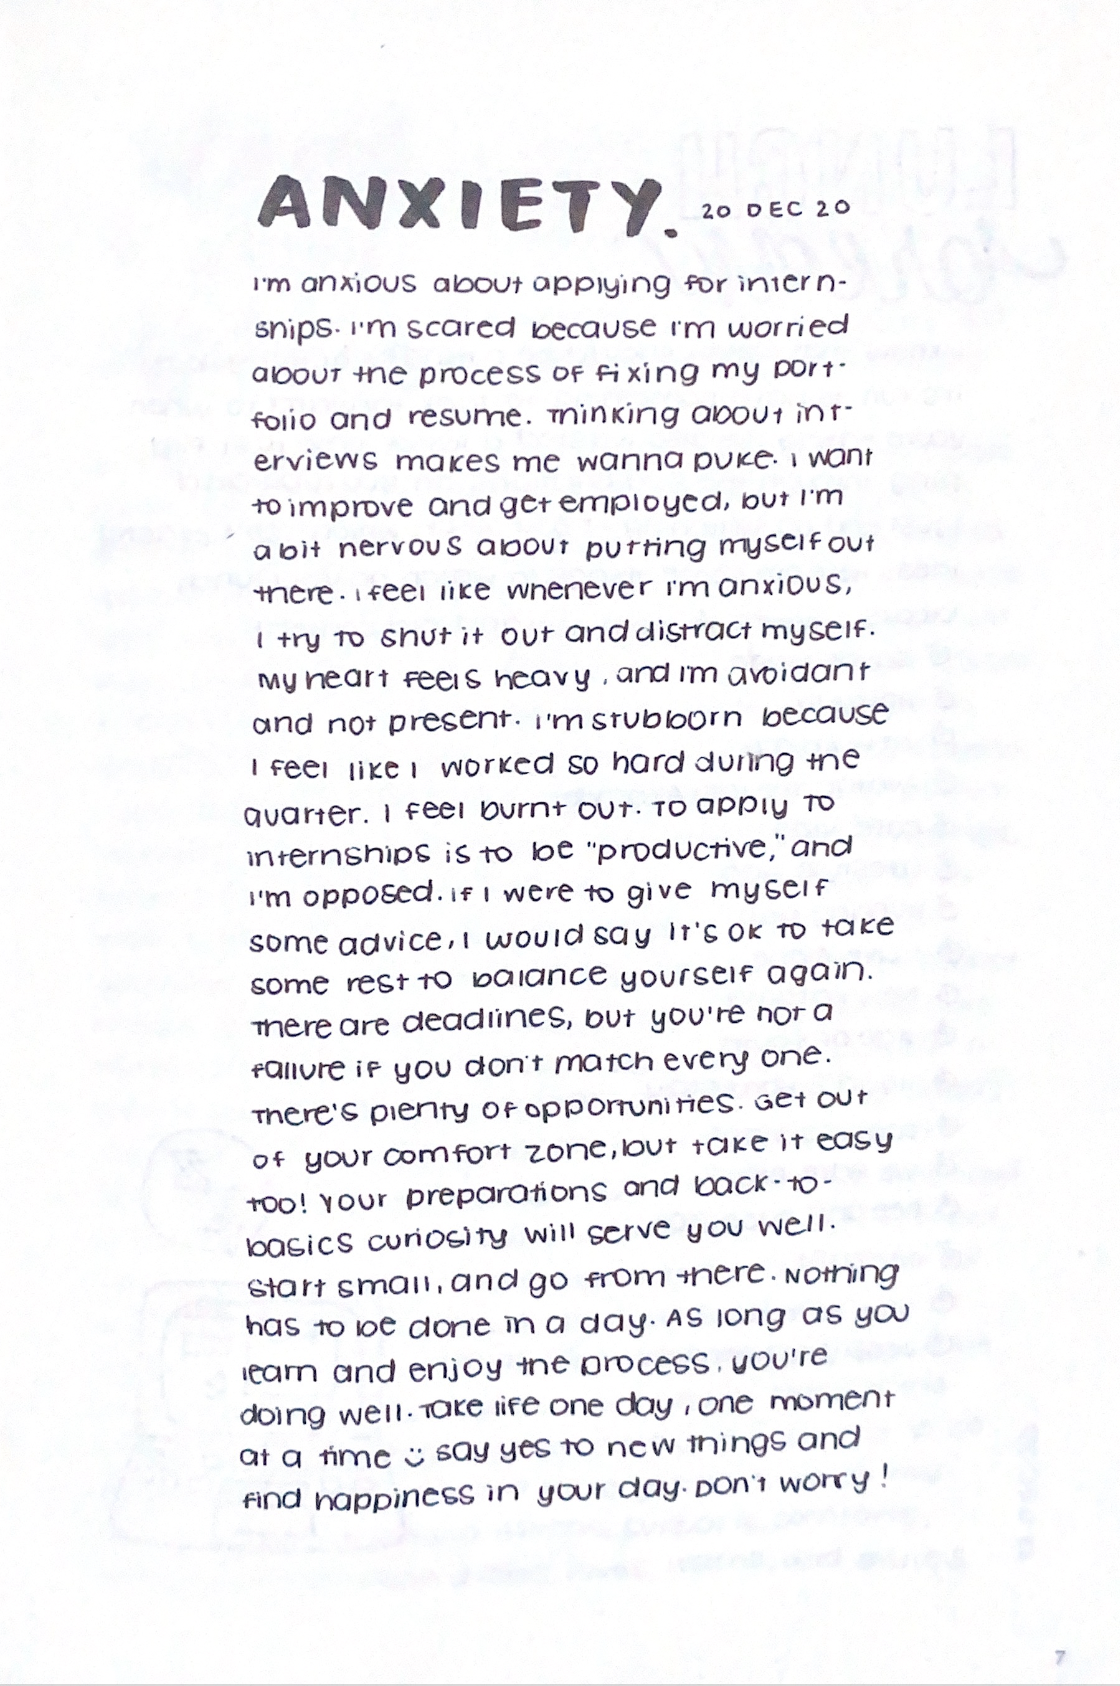 ANXIETY. 20 DEC 20
I'm anxious about applying for intern-
ships. I'm scared because I'm worried
about the process of fixing my port-
folio and resume. Thinking about int-
erviews makes me wanna puke. I want
to improve and get employed, but I'm
a bit nervous about putting myself out
there. I feel like whenever I'm anxious,
I try to shut it out and distract myself.
My heart feels heavy, and I'm avoidant
and not present. I'm stubborn because
I feel like I worked so hard during the
quarter. I feel burnt out. To apply to
internships is to be "productive," and
I'm opposed. If I were to give myself
some advice, I would say it's ok to take
some rest to balance yourself again.
There are deadlines, but you're not a
failure if you don't match every one.
There's plenty of opportunities. Get out
of your comfort zone, but take it easy
too! Your preparations and back-to-
basics curiosity will serve you well.
Start small, and go from there. Nothing
has to be done in a day. As long as you
learn and enjoy the process, you're
doing well. Take life one day, one moment
at a time :) say yes to new things and
find happiness in your day. Don't worry!
7